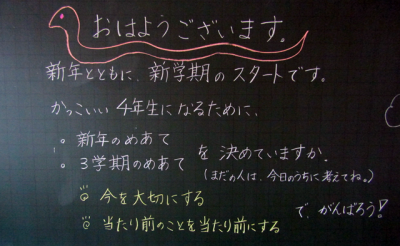 おはようございます。
新年とともに、新学期のスタートです。
かっこいい4年生になるために、
。新年のめあて
。3学期のめあて を決めていますか。
(まだの人は、今日のうちに考えてね。)
◎ 今を大切にする
◎ 当たり前のことを当たり前にする
で がんばろう!